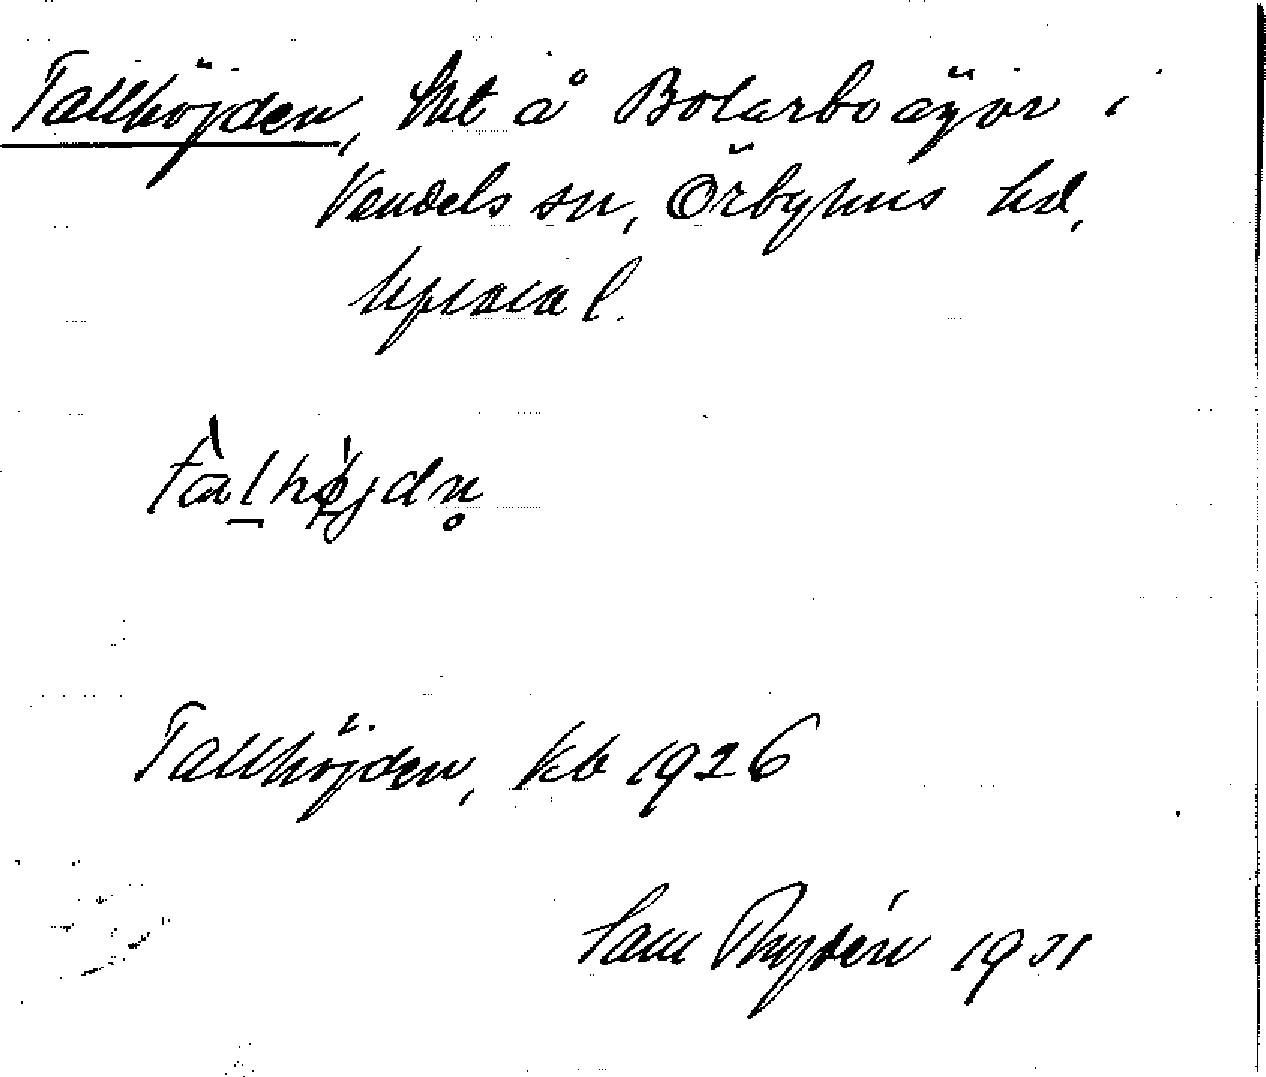 Tallhöjden, lht å Bolarbo ägor i
Vendels sn, Örbyhus hd,
Uppsala l.
tàl̠hǿjdn̥
Tallhöjden, kb 1926
Sam Rydén 1931